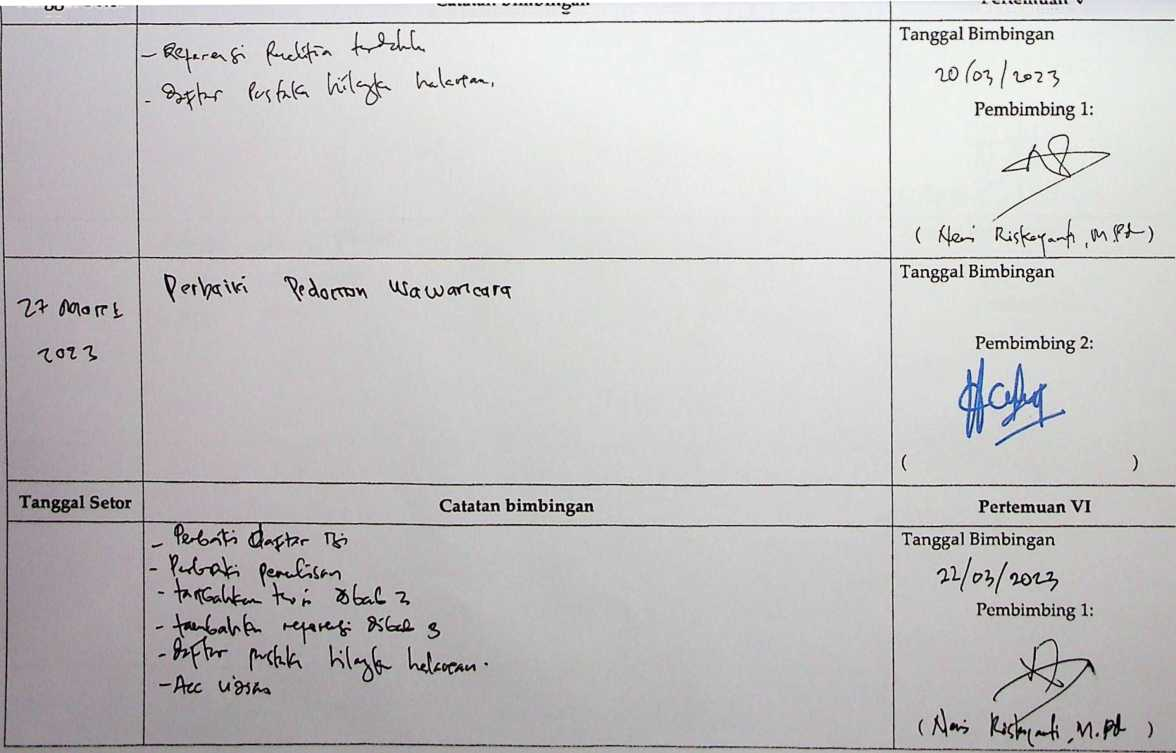 Catatan bimbingan
Pertemuan V
- Referensi Penelitian terdahulu
- Daftar Pustaka hilangkan halaman.
Tanggal Bimbingan
20/03/2023
Pembimbing 1:
( Riskayanti, M.Pd )
27 Maret
2023
Perbaiki Pedoman Wawancara
Tanggal Bimbingan
Pembimbing 2:
( )
Tanggal Setor
Catatan bimbingan
Pertemuan VI
- Perbaiki daftar Isi
- Perbaiki penulisan
- tambahkan teori dibab 2
- tambahkan referensi dibab 3
- Daftar pustaka hilangkan halaman.
- Acc
Tanggal Bimbingan
22/03/2023
Pembimbing 1:
( Riskayanti, M.Pd )